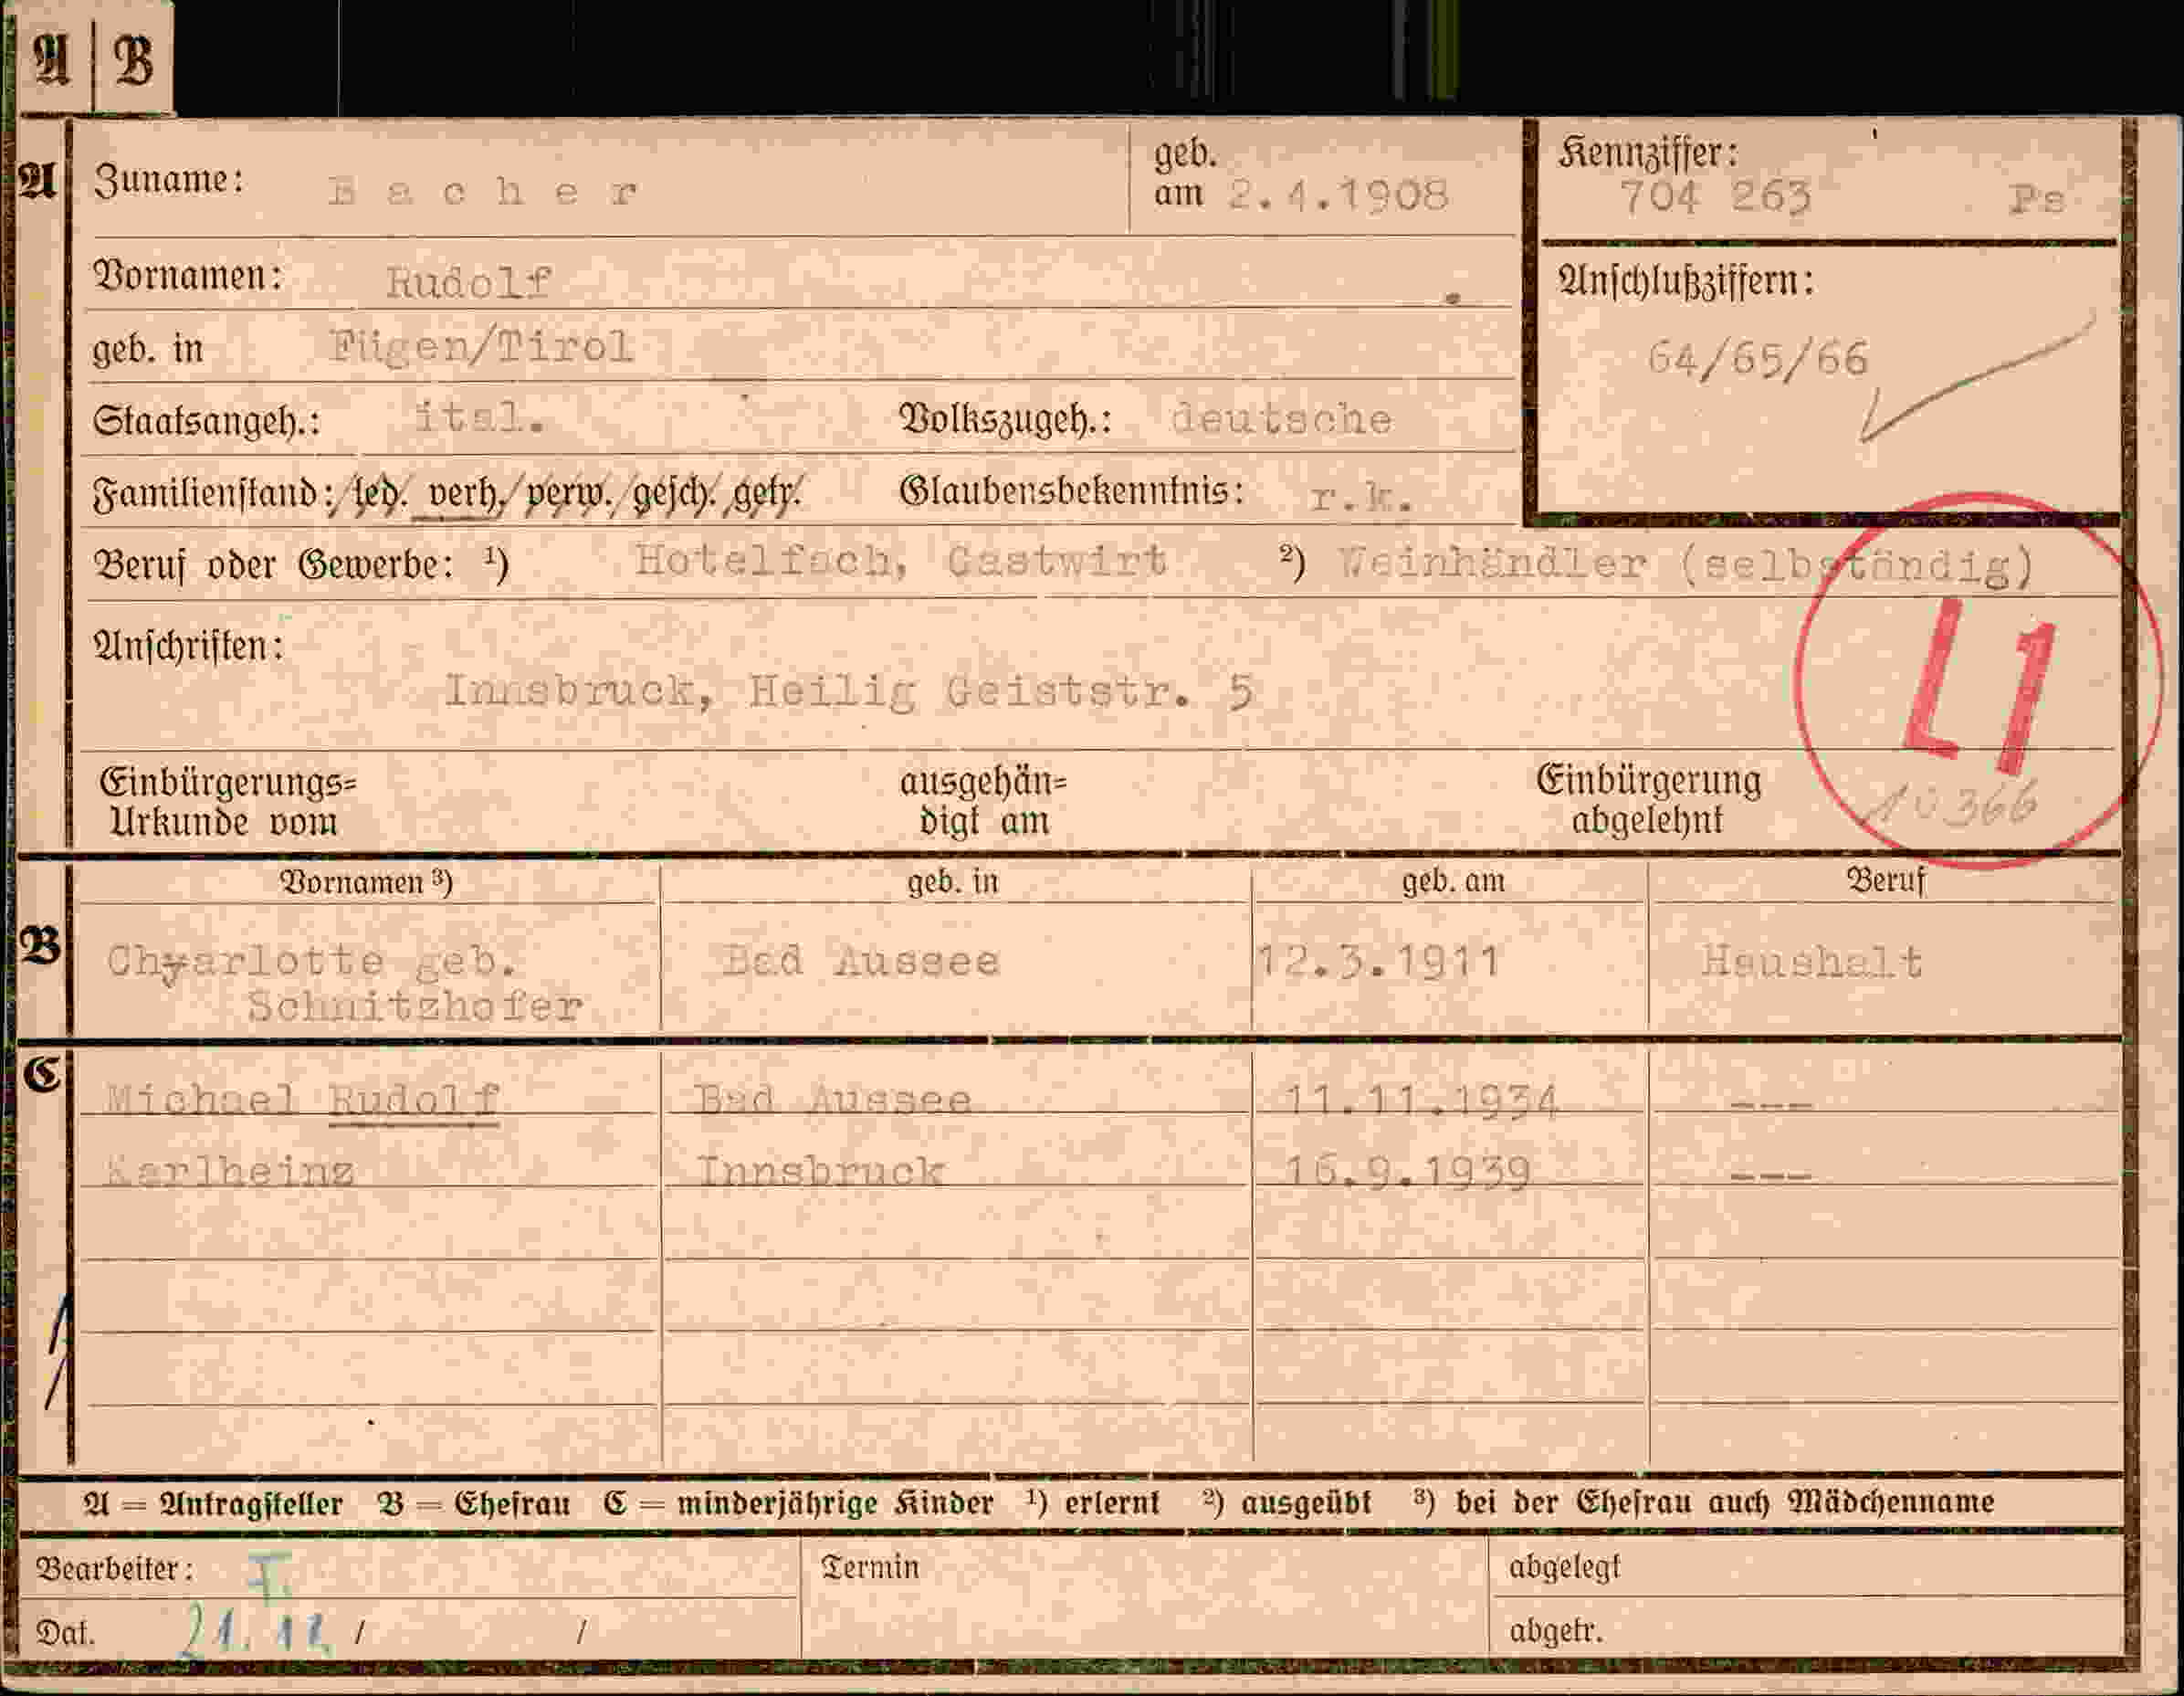 A | B
A Zuname: Bacher geb. am 2.4.1908 Kennziffer: 704 263 Ps
Vornamen: Rudolf
Anschlußziffern: 64/65/66
geb. in Fügen/Tirol
Staatsangeh.: ital. Volkszugeh.: deutsche
Familienstand: led. verh. verw. gesch. getr. Glaubensbekenntnis: r.k.
Beruf oder Gewerbe: ¹) Hotelfach, Gastwirt ²) Weinhändler (selbständig)
L1
Anschriften:
Innsbruck, Heilig Geiststr. 5
10366
Einbürgerungs= ausgehän= Einbürgerung
Urkunde vom digt am abgelehnt
Vornamen ³) geb. in geb. am Beruf
B Chyarlotte geb. Bad Aussee 12.3.1911 Haushalt
Schnitzhofer
C Michael Rudolf Bad Aussee 11.11.1934 ---
Karlheinz Innsbruck 16.9.1939 ---
A = Antragsteller B = Ehefrau C = minderjährige Kinder ¹) erlernt ²) ausgeübt ³) bei der Ehefrau auch Mädchenname
Bearbeiter: I Termin abgelegt
Dat. 21.12 / / abgetr.